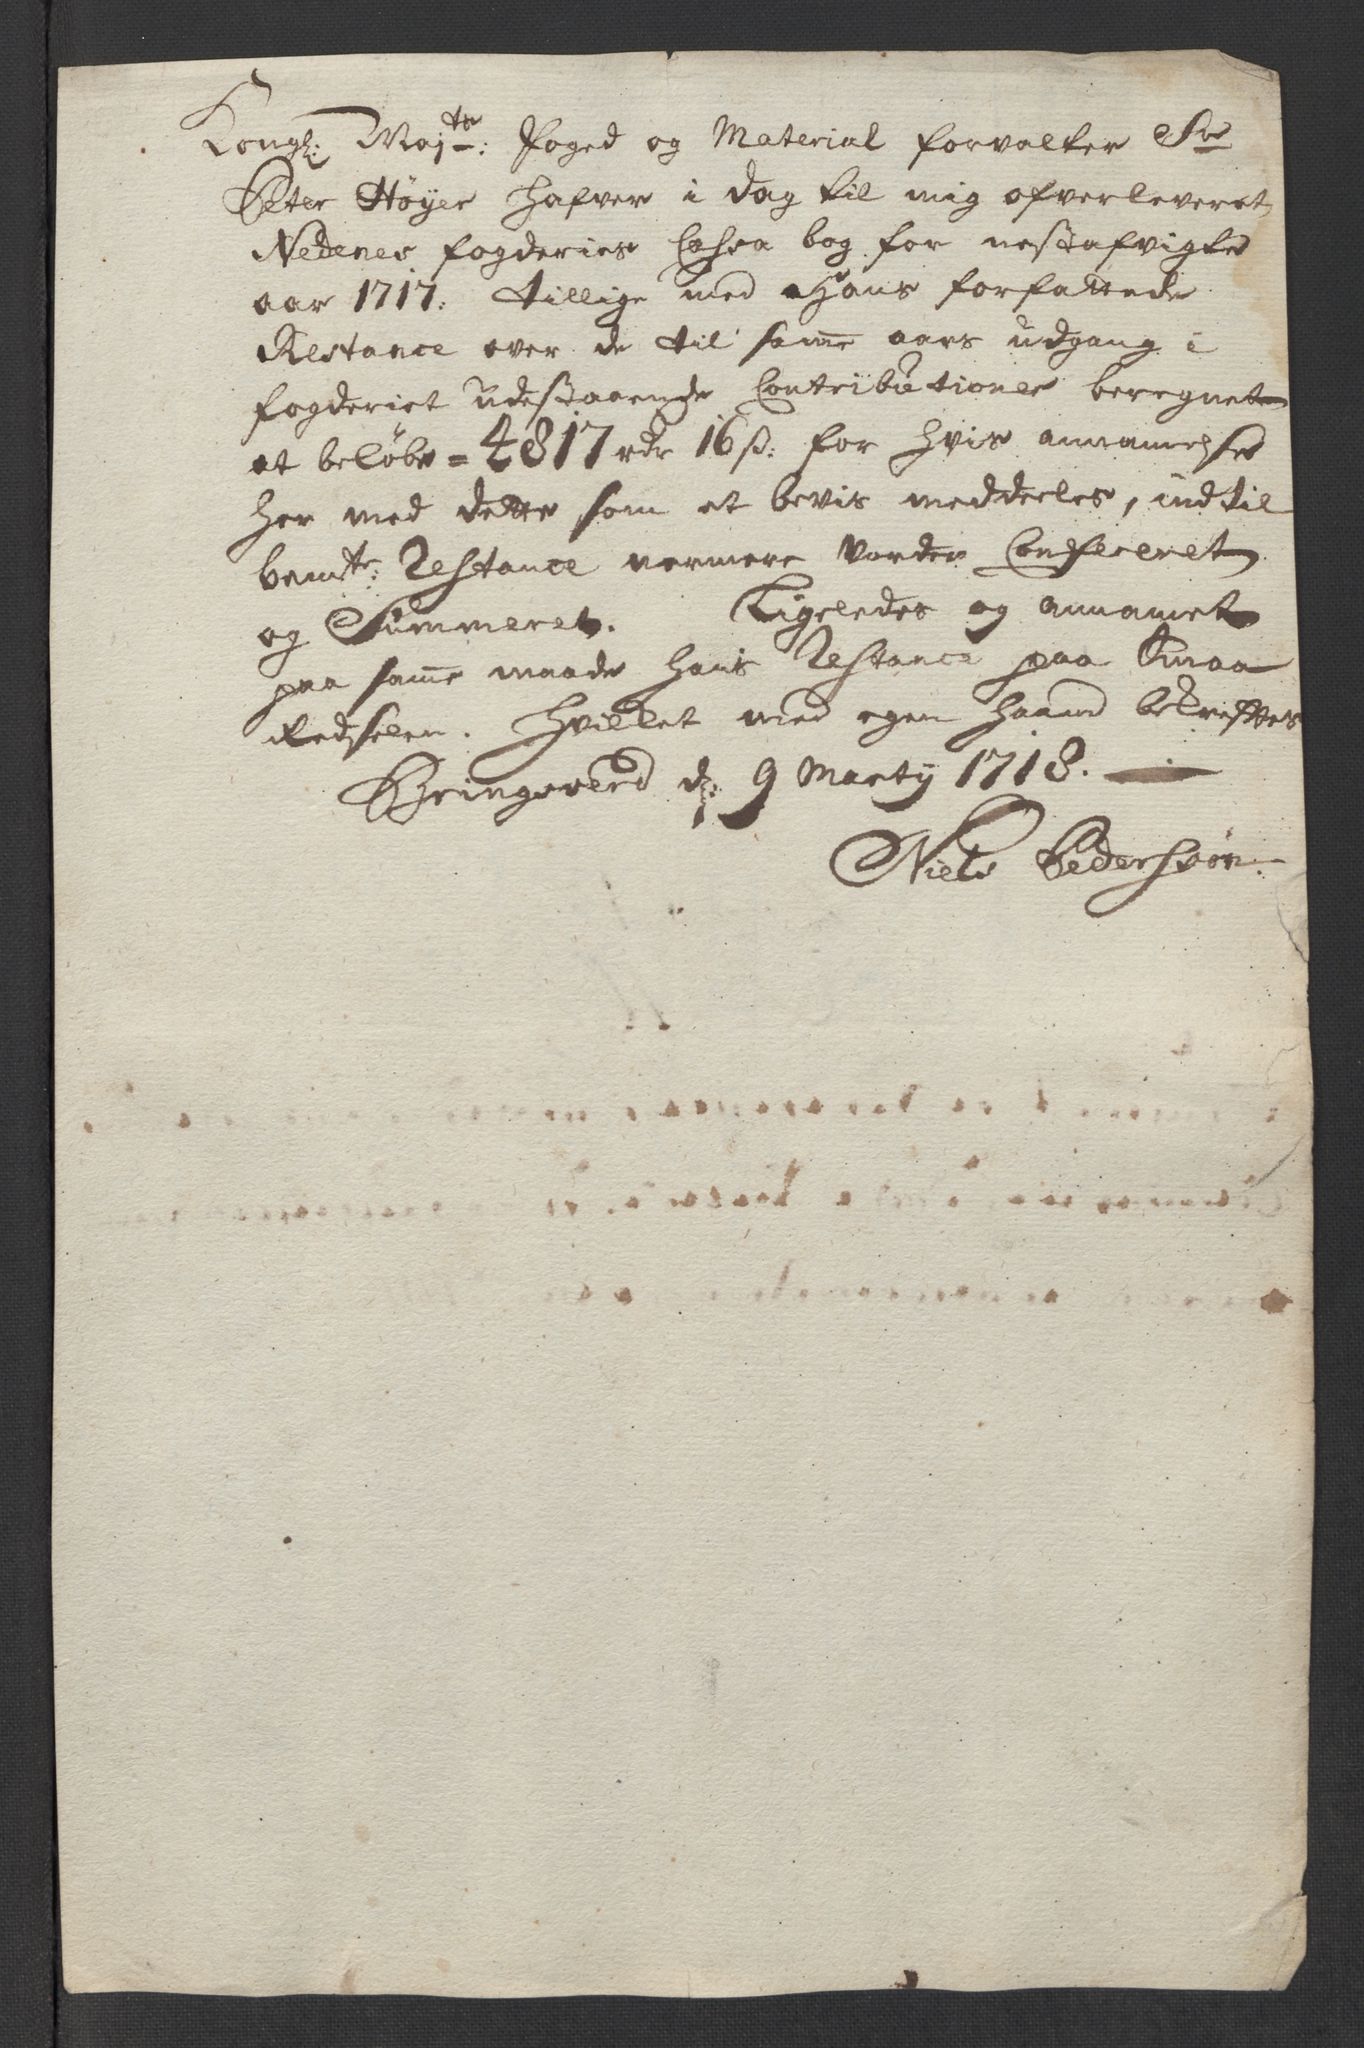 Kongl: Majts: Foged og Material forvalter Sr
Peter Höyer hafver i dag til mig ofverleveret
Nedenes fogderies Cassa bog for nestafvigte
aar 1717: tillige med Hans forfattede
Restance over de til samme aars udgang i
fogderiet udestaaende Contributioner beregnet
at beløbe = 4817 rdr 16 s: for hvis annammelse
her med dette som et bevis meddeeles, indtil
bemte: Restance nermere vorder Confereret
og Summeret. Ligeledes og annamet
paa samme maade hans Restance paa Smaa
Redselen. Hvilket med egen haand bekreftes
Bringsverd d: 9 Marty 1718.
Niels Pedersøn